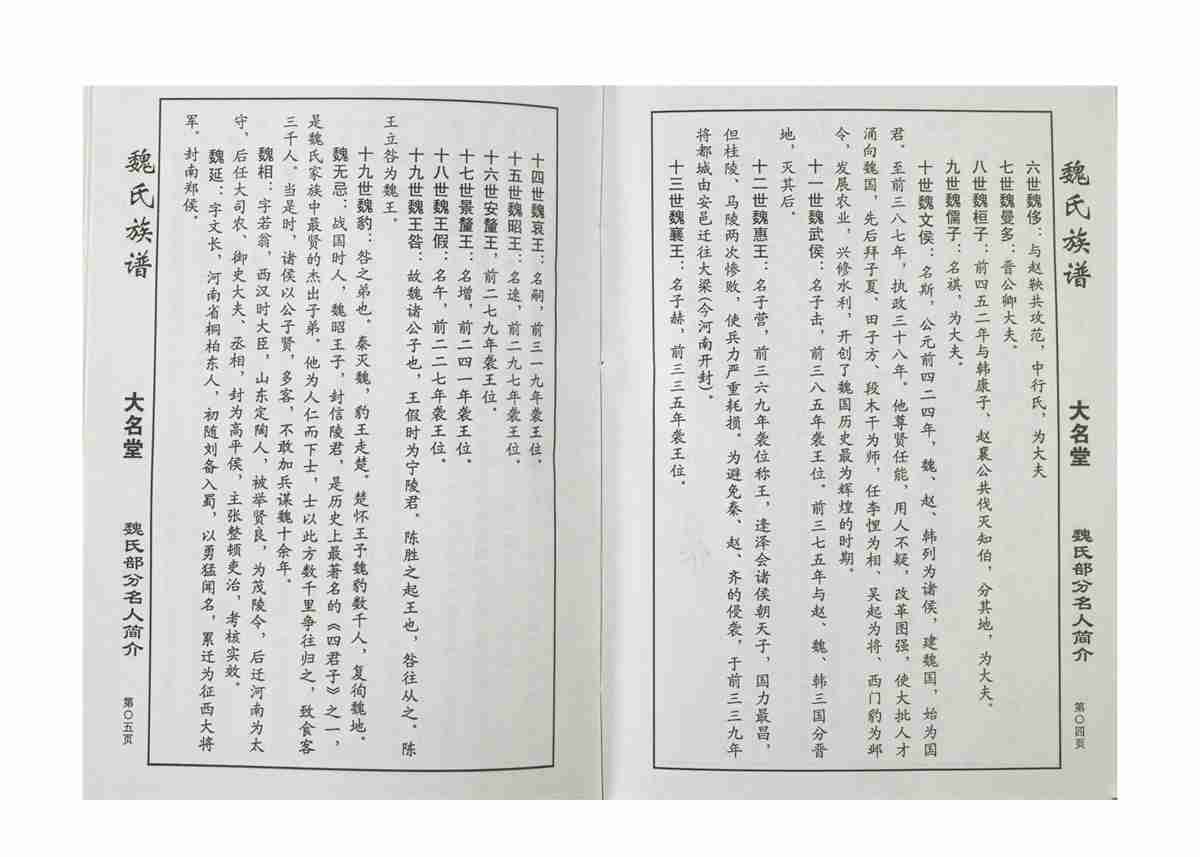 魏氏族谱
大名堂
魏氏部分名人简介
第〇四页
六世魏侈：与赵鞅共攻范，中行氏，为大夫
七世魏曼多：晋公卿大夫。
八世魏桓子：前四五二年与韩康子、赵襄公共伐灭知伯，分其地，为大夫。
九世魏儒子：名祺，为大夫。
十世魏文侯：名斯，公元前四二四年，魏、赵、韩列为诸侯，建魏国，始为国
君。至前三八七年，执政三十八年。他尊贤任能，用人不疑，改革图强，使大批人才
涌向魏国，先后拜子夏、田子方、段木干为师，任李悝为相、吴起为将、西门豹为邺
令，发展农业，兴修水利，开创了魏国历史最为辉煌的时期。
十一世魏武侯：名子击，前三八五年袭王位。前三七五年与赵、魏、韩三国分晋
地，灭其后。
十二世魏惠王：名子营，前三六九年袭位称王，逢泽会诸侯朝天子，国力最昌，
但桂陵、马陵两次惨败，使兵力严重耗损。为避免秦、赵、齐的侵袭，于前三三九年
将都城由安邑迁往大梁(今河南开封)。
十三世魏襄王：名子赫，前三三五年袭王位。
十四世魏哀王：名嗣，前三一九年袭王位。
十五世魏昭王：名速，前二九七年袭王位。
十六世安釐王，前二七九年袭王位。
十七世景釐王：名增，前二四一年袭王位。
十八世魏王假：名午，前二二七年袭王位。
十九世魏王咎：故魏诸公子也，王假时为宁陵君。陈胜之起王也，咎往从之。陈
王立咎为魏王。
十九世魏豹：咎之弟也。秦灭魏，豹王走楚。楚怀王予魏豹数千人，复徇魏地。
魏无忌：战国时人，魏昭王子，封信陵君，是历史上最著名的《四君子》之一，
是魏氏家族中最贤的杰出子弟。他为人仁而下士，士以此方数千里争往归之，致食客
三千人。当是时，诸侯以公子贤，多客，不敢加兵谋魏十余年。
魏相：字若翁，西汉时大臣，山东定陶人，被举贤良，为茂陵令，后迁河南为太
守，后任大司农、御史大夫、丞相，封为高平侯，主张整顿吏治，考核实效。
魏延：字文长，河南省桐柏东人，初随刘备入蜀，以勇猛闻名，累迁为征西大将
军。封南郑侯。
魏氏族谱
大名堂
魏氏部分名人简介
第〇五页